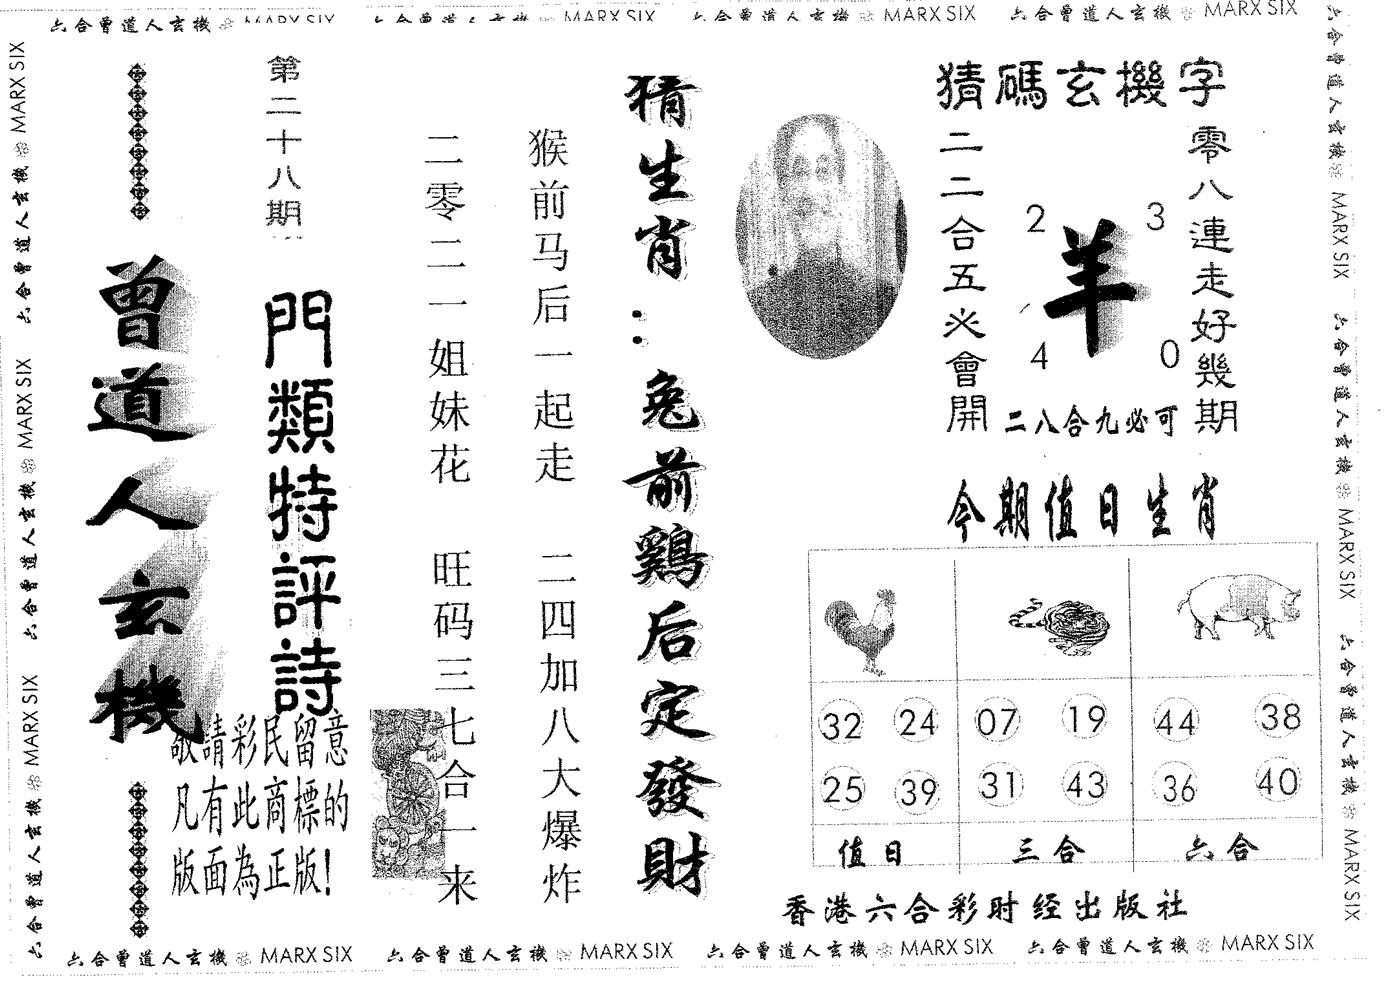 六合曾道人玄機 MARX SIX 六合曾道人玄機 MARX SIX 六合曾道人玄機 MARX SIX 六合曾道人玄機 MARX SIX
猜碼玄機字
零八連走好幾期
2 3
羊
4 0
二八合九必可
二二合五必會開
猜生肖：兔前鷄后定發財
猴前马后一起走 二四加八大爆炸
二零二一姐妹花 旺码三七合一来
第二十八期
門類特評詩
曾道人玄機
敬請彩民留意
凡有此商標的
版面為正版!
今期值日生肖
32 24 07 19 44 38
25 39 31 43 36 40
值日 三合 六合
香港六合彩时经出版社
六合曾道人玄機 MARX SIX 六合曾道人玄機 MARX SIX 六合曾道人玄機 MARX SIX
六合曾道人玄機 MARX SIX 六合曾道人玄機 MARX SIX 六合曾道人玄機 MARX SIX
六合曾道人玄機 MARX SIX 六合曾道人玄機 MARX SIX 六合曾道人玄機 MARX SIX 六合曾道人玄機 MARX SIX